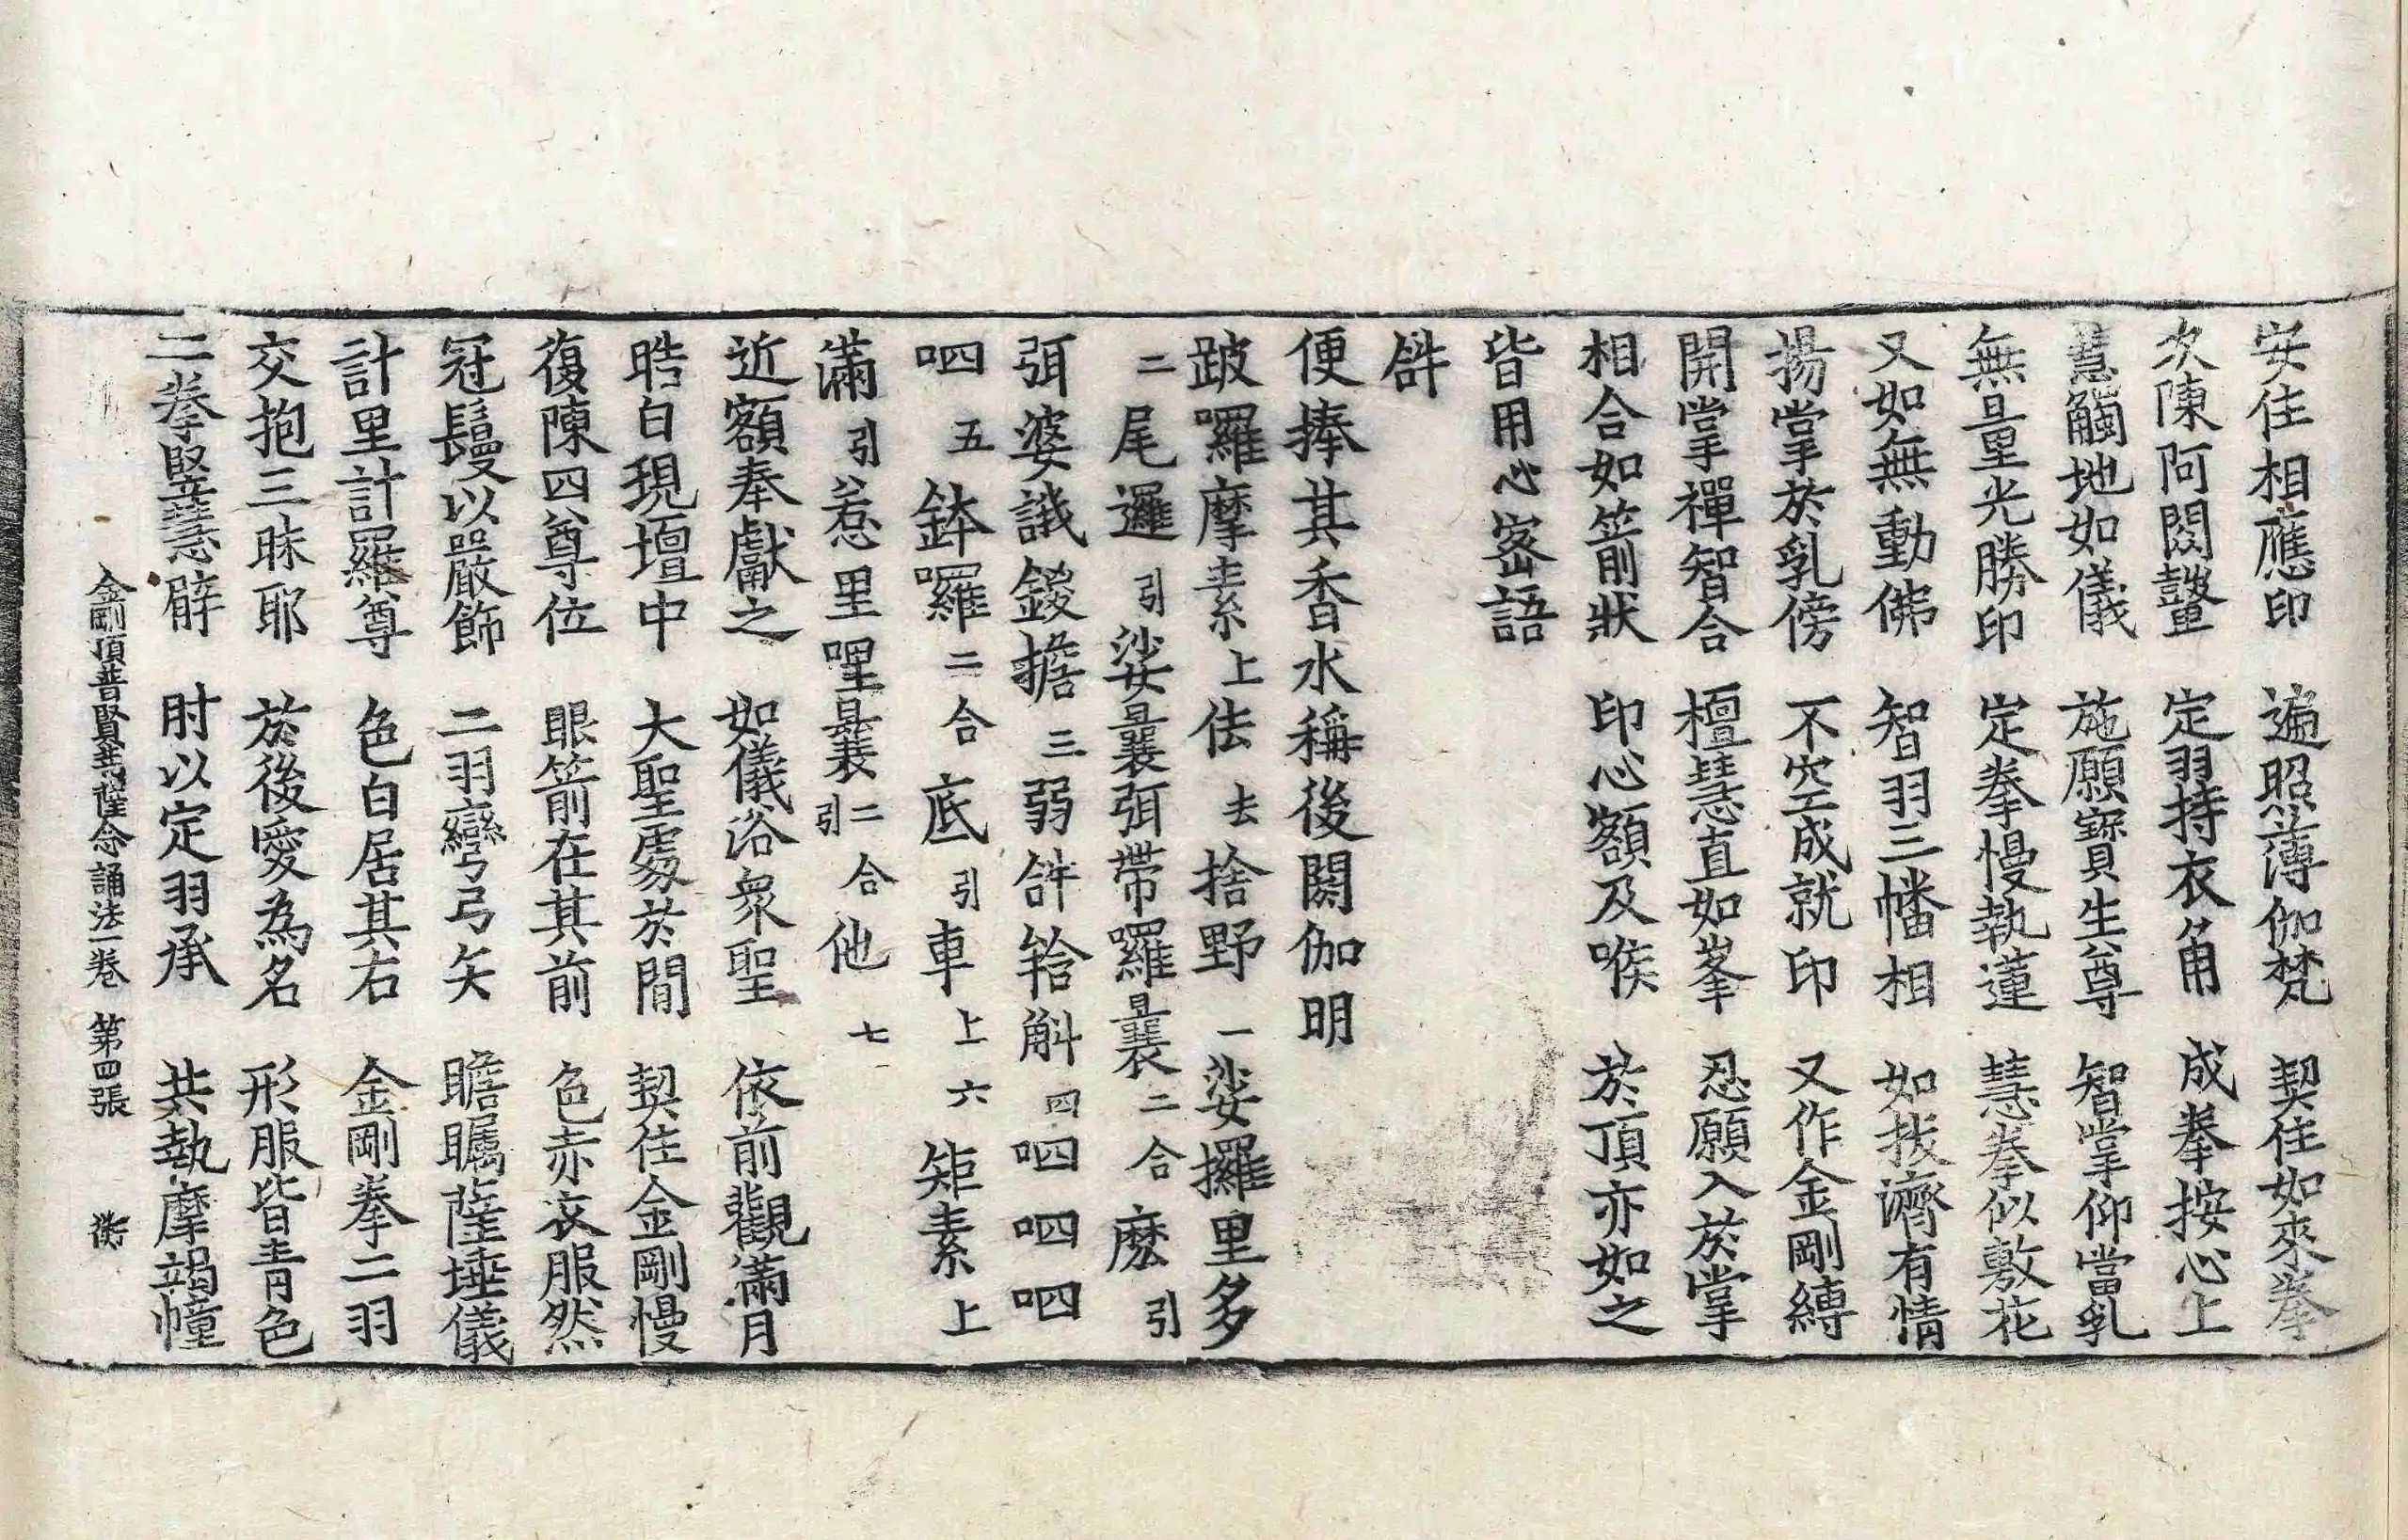 安住相應印 遍照薄伽梵 契住如來拳
次陳阿閦鞞 定羽持衣角 成拳按心上
慧觸地如儀 施願寶生尊 智掌仰當乳
無量光勝印 定拳慢執蓮 慧拳似敷花
又如無動佛 智羽三幡相 如拔濟有情
揚掌於乳傍 不空成就印 又作金剛縛
開掌禪智合 檀慧直如峯 忍願入於掌
相合如箭狀 印心額及喉 於頂亦如之
皆用心密語
𤙖
便捧其香水稱後閼伽明
跛囉摩素上佉去捨野一娑攞里多
二尾邏引娑曩弭帶囉曩二合麼引
弭婆誐鍐擔三弱𤙖斛四呬呬呬
呬五鉢囉二合底引車上六矩素上
滿引惹里哩曩二合引他七
近額奉獻之 如儀浴衆聖 依前觀滿月
晧白現壇中 大聖處於間 契住金剛慢
復陳四尊位 眼箭在其前 色赤衣服然
冠鬘以嚴飾 二羽彎弓矢 瞻矚薩埵儀
計里計羅尊 色白居其右 金剛拳二羽
交抱三昧耶 於後愛為名 形服皆青色
二拳豎慧臂 肘以定羽承 共執摩竭幢
金剛頂普賢瑜伽念誦法一卷 第四張